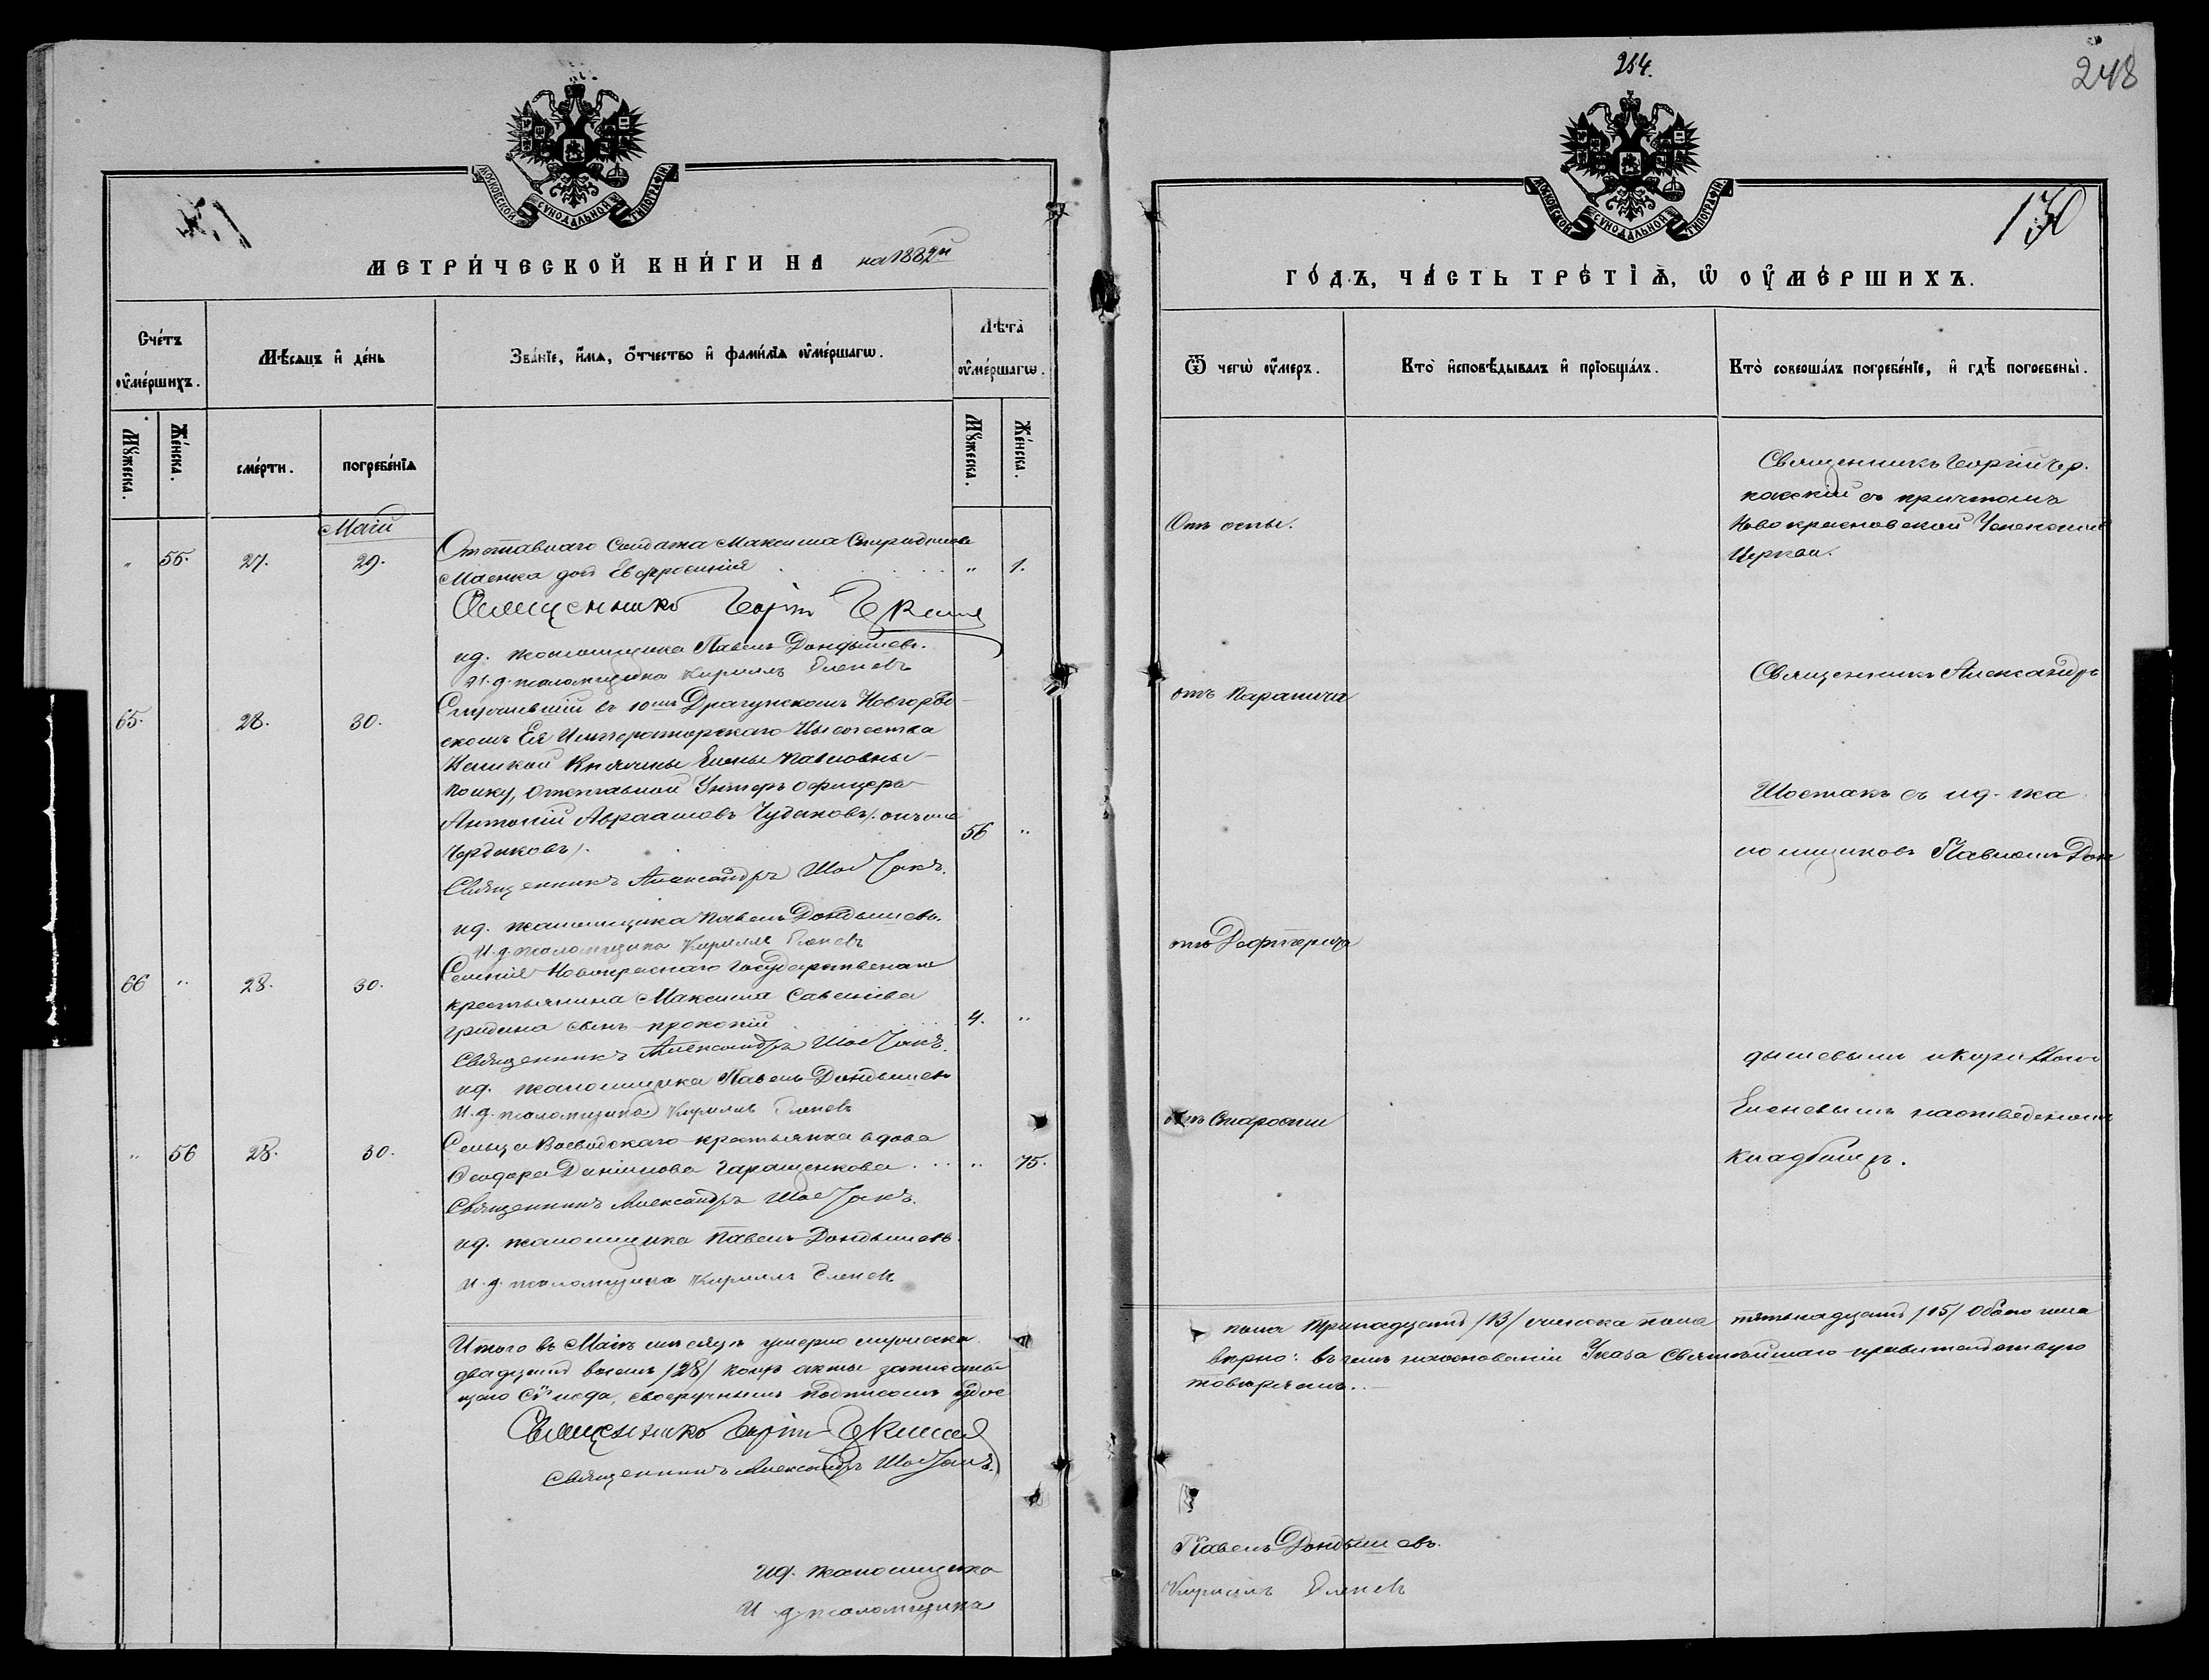 МОСКОВСКОЙ СѴНОДАЛЬНОЙ ТИПОГРАФІИ
МЕТРИ́ЧЕСКОЙ КНИ́ГИ НА на 1882й
Сче́тъ оу҆ме́ршихъ.
Мѣ́сяцъ и҆ де́нь
Зва́нїе, и҆́мѧ, ѻ҆́тчество и҆ фами́лїѧ оу҆ме́ршагѡ.
Лѣ́та оу҆ме́ршагѡ.
Мꙋ́жеска.
Же́нска.
сме́рти.
погребе́нїѧ
Мꙋ́жеска.
Же́нска.
Маій
" 55. 27. 29. Отставнаго Солдата Максима Спиридонова
Маенка дочь Евфросинія " 1.
Священникъ Георгій
ид. псаломщика Павелъ Дондышевъ.
И. д. псаломщика Кириллъ Еленевъ
65. 28. 30. Служившій въ 10мъ Драгунскомъ Новгород-
скомъ Ея Императорскаго Высочества
Великой Княгини Елены Павловны
Полку, отставной Унтеръ офицеръ
Антоній Авраамовъ Чудаковъ/ онъ же
Чердаковъ/. 56 "
Священникъ Александръ Шостакъ.
ид. псаломщика Павелъ Дондышевъ.
И. д. псаломщика Кириллъ Еленевъ
66 " 28. 30. Селенія Новокраснаго государственаго
крестьянина Максима Савелієва
Гридина сынъ Прокопій 4. "
Священникъ Александръ Шостакъ.
ид. псаломщика Павелъ Дондышевъ
И. д. псаломщика Кириллъ Еленевъ
" 56 28. 30. Сельца Воеводскаго крестьянка вдова
Ѳеодора Данілова Гаращенкова " 75.
Священникъ Александръ Шостакъ.
ид. псаломщика Павелъ Дондышевъ.
И. д. псаломщика Кириллъ Еленевъ
Итого въ Маіѣ мѣсяцѣ умерло мужеска
двадцать восемь /28/ коихъ акты записаны
щаго Сѵнода, своеручнымъ подписомъ удос
Священникъ Георгій
Священникъ Александръ Шостакъ.
ид. псаломщика
И. д. псаломщика
254.
248
МОСКОВСКОЙ СѴНОДАЛЬНОЙ ТИПОГРАФІИ
130
ГО́ДЪ, ЧА́СТЬ ТРЕ́ТЇѦ, Ѡ҆ ОУ҆МЕ́РШИХЪ.
Ѿ чегѡ̀ оу҆́меръ.
Кто̀ и҆сповѣ́дывалъ и҆ прїобща́лъ.
Кто̀ соверша́лъ погребе́нїе, и҆ гдѣ̀ погребены̀.
Отъ оспы.
Священникъ Георгій Чер-
касскій съ причтомъ
Новокрасновской Успенской
Церкви.
отъ Паралича
Священникъ Александръ
Шостакъ съ ид. пса
ломщиковъ Павломъ Дон
отъ Дефтерита
дышевымъ и Кириллом
отъ Старости
Еленевымъ на отведеномъ
кладбищѣ.
пола тринадцать /13/ женска пола пятьнадцать /15/ обоего пола
вѣрно: въ чемъ на основаніи Указа Святѣйшаго правительствую
товѣряемъ.
Павелъ Дондышевъ.
Кириллъ Еленевъ